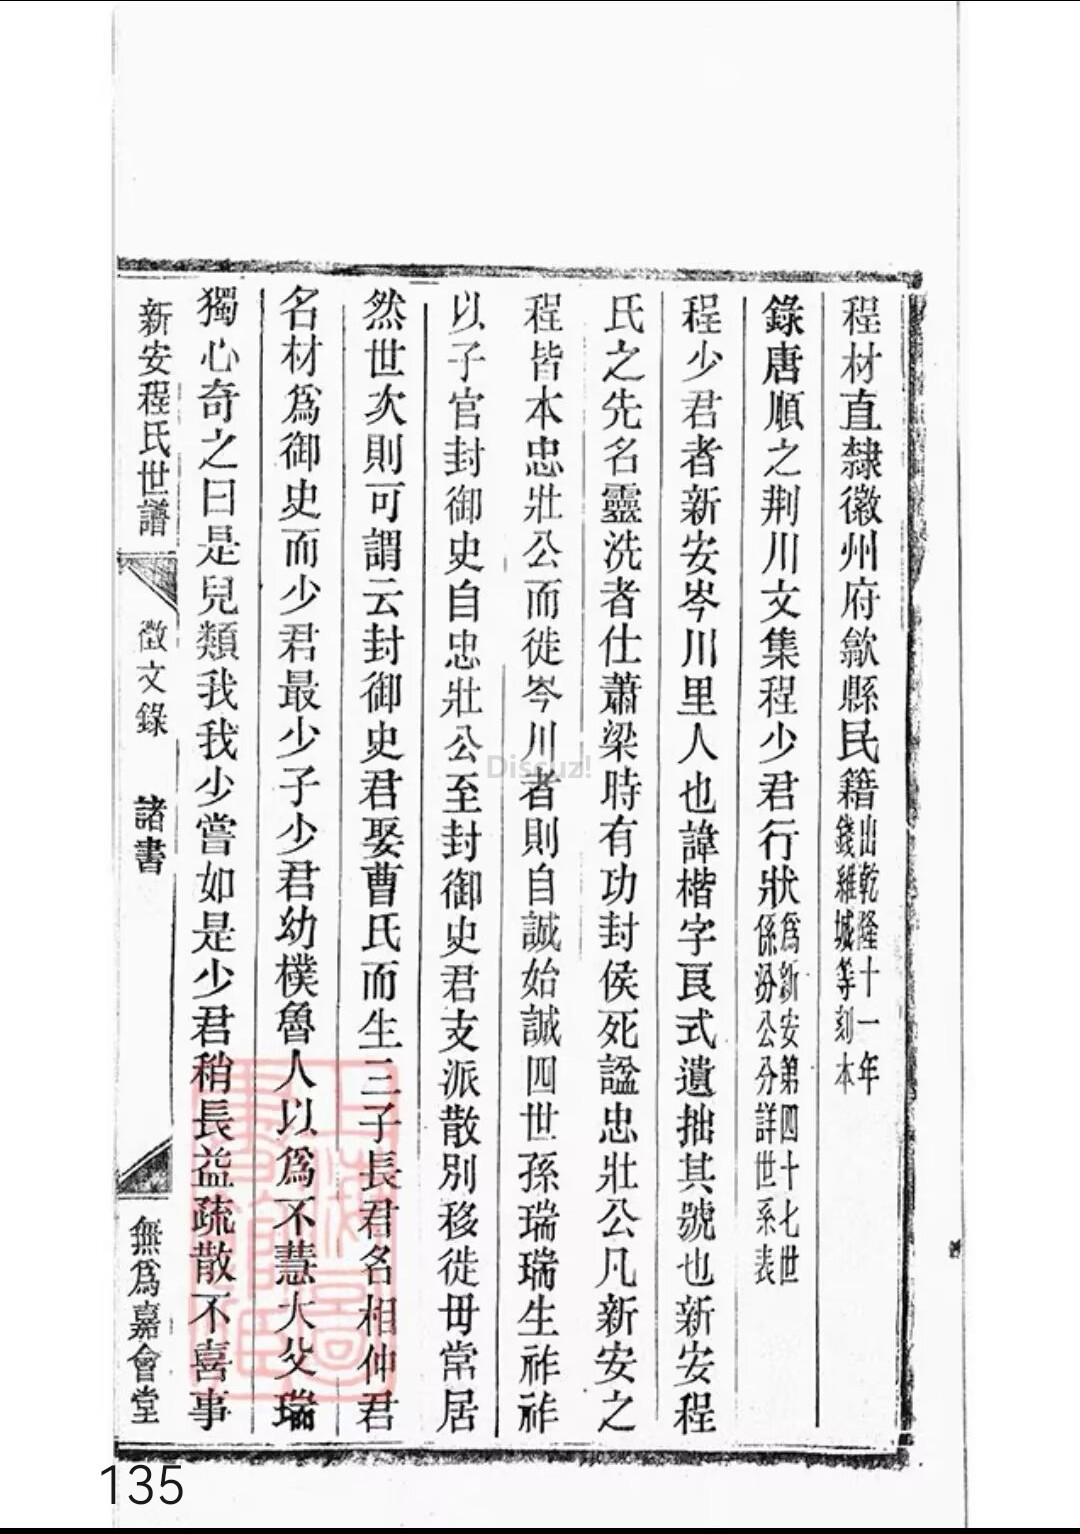 程材直隸徽州府歙縣民籍出乾隆十一年錢維城等刻本
錄唐順之荆川文集程少君行狀爲新安第四十七世係汾公分詳世系表
程少君者新安岑川里人也諱楷字良式遺拙其號也新安程
氏之先名靈洗者仕蕭梁時有功封侯死謚忠壯公凡新安之
程皆本忠壯公而徙岑川者則自誠始誠四世孫瑞瑞生祚祚
以子官封御史自忠壯公至封御史君支派散別移徙毋常居
然世次則可謂云封御史君娶曹氏而生三子長君名相仲君
名材爲御史而少君最少子少君幼樸魯人以爲不慧大父瑞
獨心奇之曰是兒類我我少嘗如是少君稍長益疏散不喜事
新安程氏世譜
徵文錄
諸書
無爲嘉會堂
上海圖書館藏
Discuz!
135